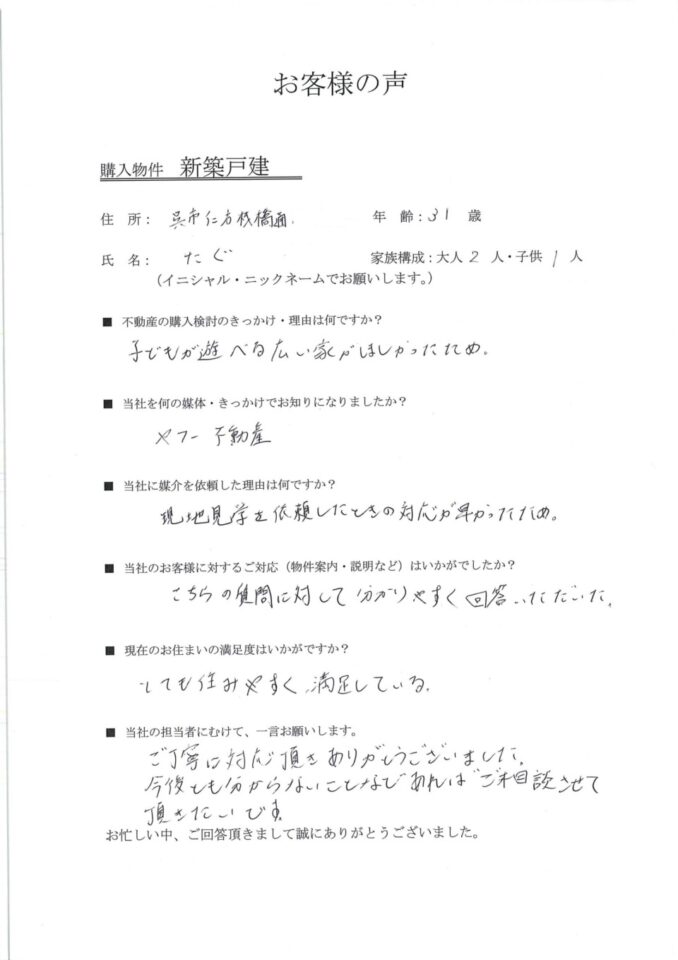 お客様の声
購入物件 新築戸建
住 所： 呉市仁方桟橋通. 年 齢：31 歳
氏 名： たぐ 家族構成：大人 2 人・子供 1 人
（イニシャル・ニックネームでお願いします。）
■ 不動産の購入検討のきっかけ・理由は何ですか？
子どもが遊べる広い家がほしかったため。
■ 当社を何の媒体・きっかけでお知りになりましたか？
ヤフー不動産
■ 当社に媒介を依頼した理由は何ですか？
現地見学を依頼したときの対応が早かったため。
■ 当社のお客様に対するご対応（物件案内・説明など）はいかがでしたか？
こちらの質問に対して分かりやすく回答いただいた.
■ 現在のお住まいの満足度はいかがですか？
とても住みやすく、満足している.
■ 当社の担当者にむけて、一言お願いします。
ご丁寧に対応頂きありがとうございました.
今後とも分からないことなどあればご相談させて
頂きたいです
お忙しい中、ご回答頂きまして誠にありがとうございました。